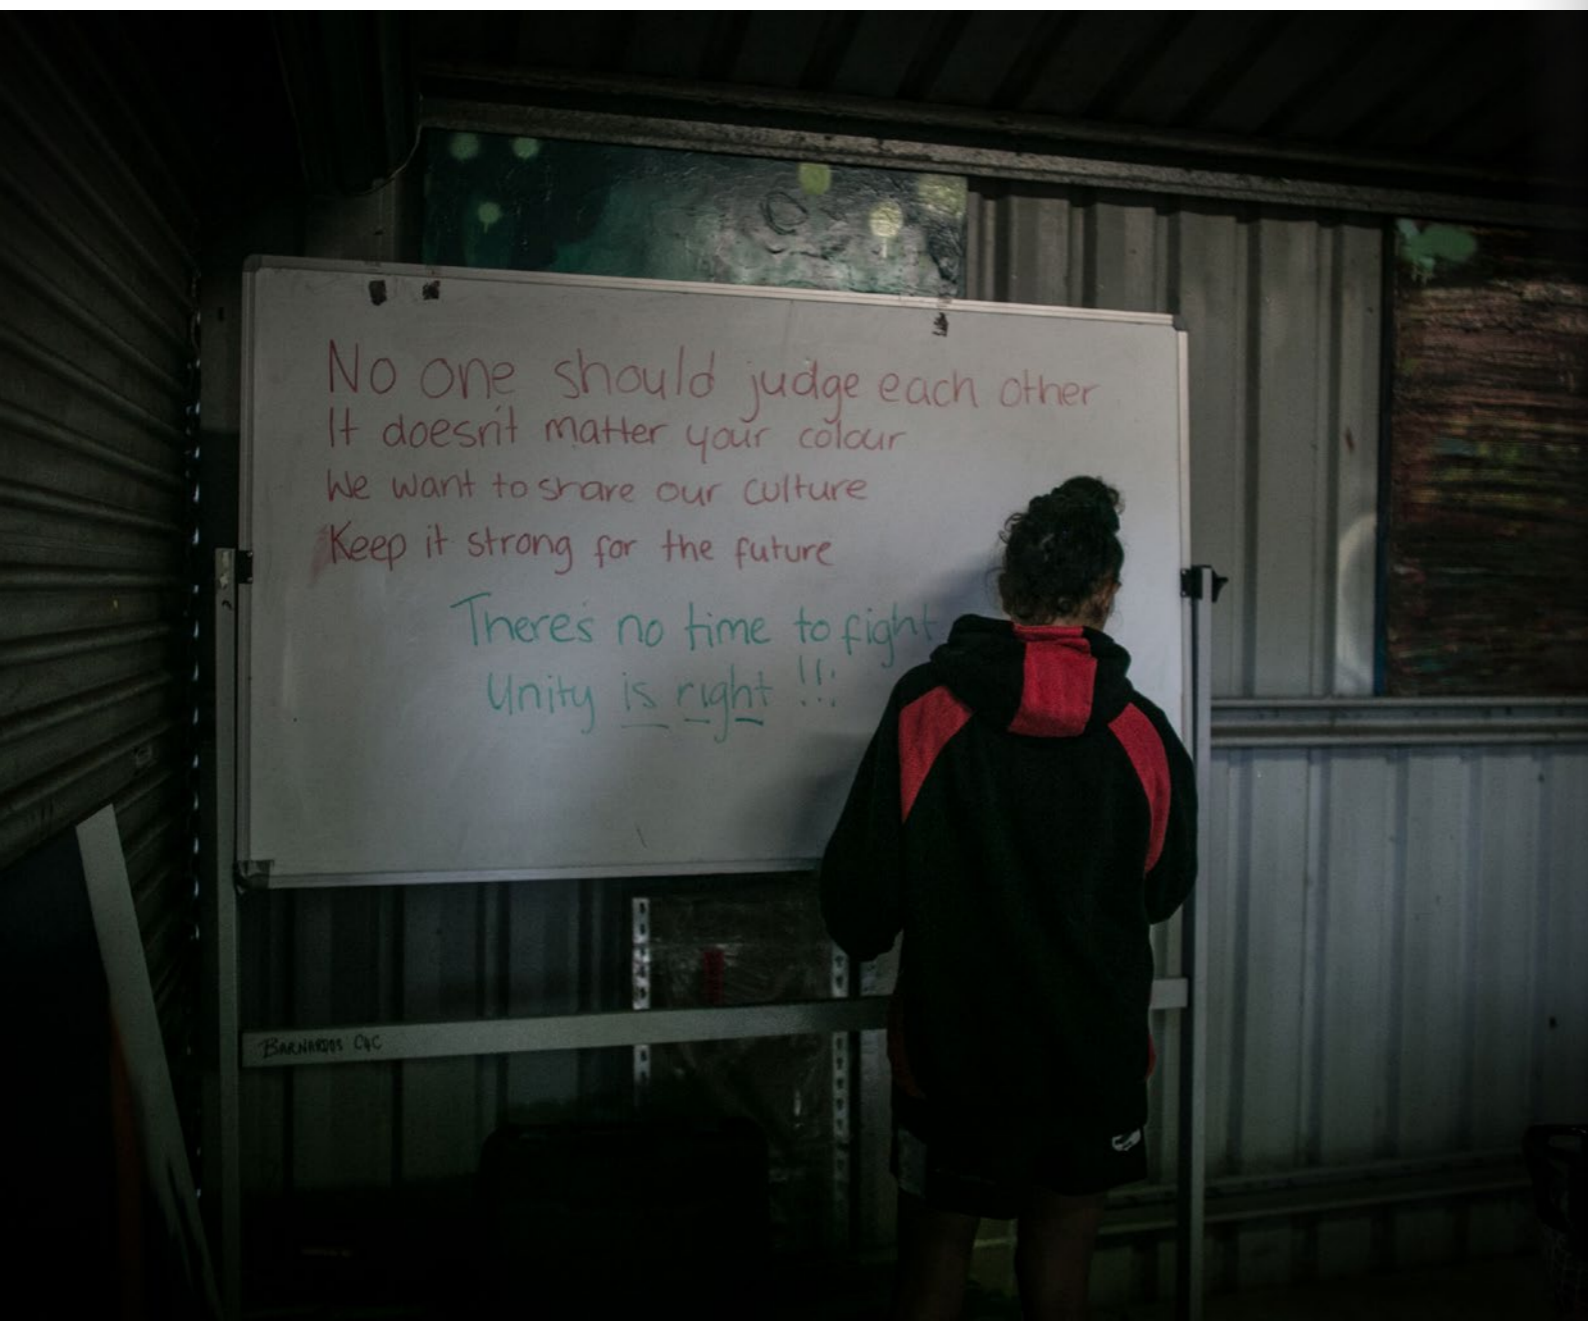 No one should judge each other
It doesn't matter your colour
We want to share our culture
Keep it strong for the future
There's no time to fight
Unity is right !!!
BARNARDOS C4C